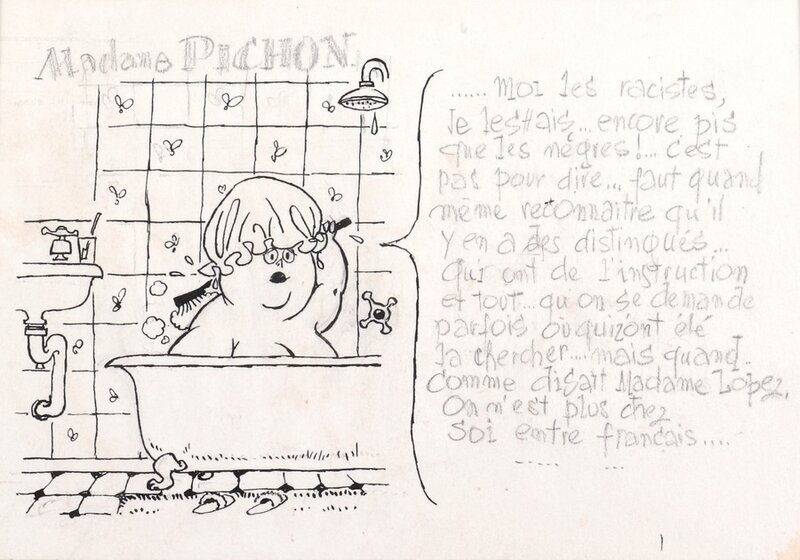 Madame PICHON
...... Moi les racistes,
Je les hais... encore pis
que les nègres!... c'est
pas pour dire... faut quand
même reconnaitre qu'il
y en a des distingués...
Qui ont de l'instruction
et tout... qu'on se demande
parfois où qui z'ont été
la chercher.... mais quand
Comme disait Madame Lopez,
On n'est plus chez
soi entre français....
..... ...